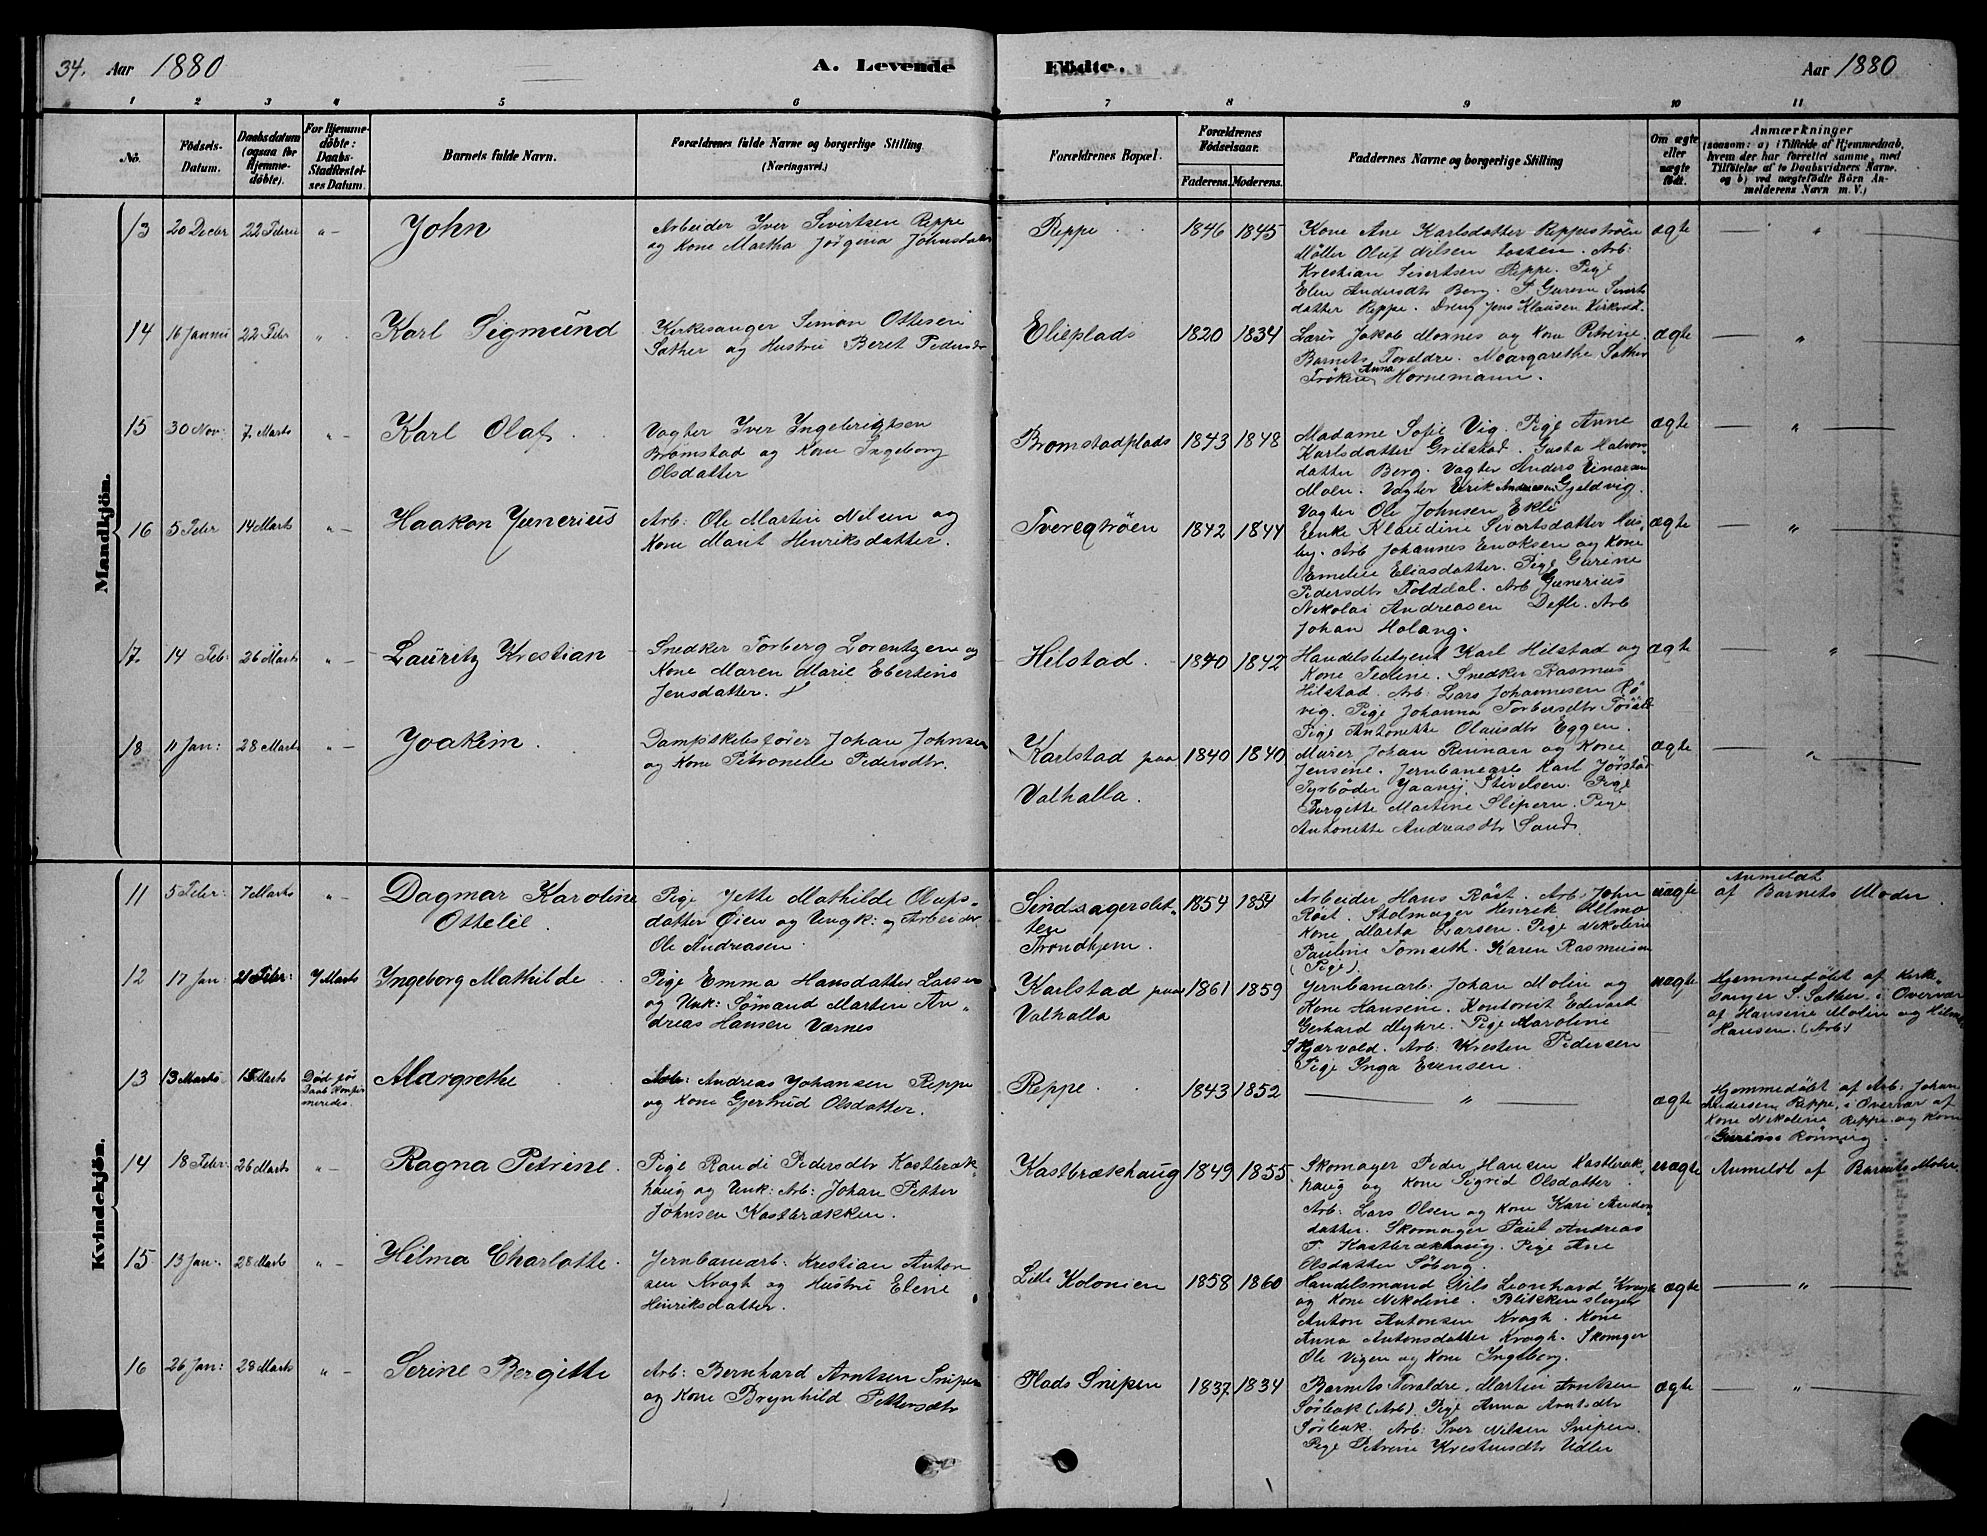 34. Aar 1880
A. Levende Födte.
Aar 1880
1 2 3 4 5 6 7 8 9 10 11
No.
Födsels-Datum.
Daabsdatum (ogsaa for Hjemme-döbte).
For Hjemme-döbte: Daabs-Stadfæstel-ses Datum.
Barnets fulde Navn.
Forældrenes fulde Navne og borgerlige Stilling. (Næringsvei.)
Forældrenes Bopæl.
Forældrenes Födselsaar.
Faderens. Moderens.
Faddernes Navne og borgerlige Stilling
Om ægte eller uægte født.
Anmærkninger
(saasom: a) i Tilfælde af Hjemmedaab,
hvem der har forrettet samme, med
Tilföielse af to Daabsvidners Navne.
og b) ved uægtefödte Börn An-
melderens Navn m. V.)
Mandkjön.
13 20 Decbr 22 Febru " John
Arbeider Iver Sivertsen Reppe
og Kone Martha Jørgina Johnsdatter
Reppe 1846 1845
Kone Ane Karlsdatter Reppestrøen
Møller Oluf Nilsen Losten. Arb:
Krestian Sivertsen Reppe. Pige
Elen Andersdtr Berg. P. Gurine Siverts
datter Reppe. Dreng Jens Klausen
ægte "
14 16 Januu 22 Febr " Karl Sigmund
Kirkesanger Simon Ottesen
Sæther og Hustru Beret Pedersdtr
Elieplads 1820 1834
Lærer Jakob Moxnes og Kone Petrine.
Barnets Forældre. Margarethe Sæther
Frøken Anna Hornemann.
ægte "
15 30 Nov: 7 Marts " Karl Olaf
Vagter Iver Ingebrigtsen
Bromstad og Kone Ingeborg
Olsdatter
Bromstadplads 1843 1848
Madame Sofie Vig. Pige Anne
Karlsdatter Grilstad. Gusta Halvors
datter Berg. Vagter Anders Einarsen
Moen. Vagter Erik Andresen Gjeldvig.
Vagter Ole Johnsen Ekle
ægte "
16 5 Febr 14 Marts " Haakon Junerius
Arb: Ole Martin Nilsen og
Kone Marit Henriksdatter.
Tveregtrøen 1842 1844
Enke Klaudine Sivertsdatter Hus
by. Arb Johannes Enoksen og Kone
Emelie Eliasdatter. Pige Gurine
Pedersdtr Folddal. Arb Gunerius
Nikolai Andreasen Defle. Arb
Johan Holang.
ægte "
17. 14 Feb: 26 Marts " Lauritz Krestian
Snedker Torberg Lorentzen og
Kone Maren Marie Ebertine
Jensdatter.
Hilstad. 1840 1842
Handelsbetjent Karl Hilstad og
Kone Tedline. Snedker Rasmus
Hilstad. Arb: Lars Johannesen Rø
vig. Pige Johanna Torbersdtr
Pige Antonette Olausdtr Eggen.
ægte "
18 11 Jan: 28 Marts " Joakim.
Dampskibsfører Johan Johnsen
og Kone Petronelle Pedersdtr.
Karlstad paa
Valhalla.
1840 1840
Murer Johan Rennan og Kone
Jensine. Jernbanearb Karl Jørstad
Fyrbøder Stivelsen. Pige
Bergitte Martine Slipern. Pige
Antonette Andreasdtr Sand.
ægte "
Kvindekjön.
11 5 Febr: 7 Marts " Dagmar Karoline
Ottelie.
Pige Jette Mathilde Olufs-
datter Øien og Ungk: og Arbeider
Ole Andreasen.
Sindsagerslet-
ten
Trondhjem.
1854 1854
Arbeider Hans Röst. Arb: John
Röst. Stolmager Henrik Ulmo
Kone Marta Larsen. Pige Nikoline
Pauline Tomseth. Karen Rasmusen
(Pige).
uægte
Anmeldt
af Barnets Moder.
12 17 Jan: 21 Febr: 7 Marts Ingeborg Mathilde
Pige Emma Hansdatter Larsen
og Unk: Sømand Marten An-
dreas Hansen Værnes
Karlstad paa
Valhalla
1861 1859
Jernbanearb: Johan Molin og
Kone Hansine. Kontorist Edevart
Gerhard Myhre. Pige Karoline
Skjærvold. Arb: Kresten Pedersen
Pige Inga Evensen.
uægte
Hjemmedøbt af Kirke
sanger S. Sæther i Overvær
af Hansine Molin og Hilma
Hansen. (Arb)
13 13 Marts 15 Marts Død før
Daab Konfir
meredes.
Margrethe
Arb: Andreas Johansen Reppe
og Kone Gjertrud Olsdatter.
Reppe 1843 1852 " ægte
Hjemmedøbt af Arb: Johan
Andersen Reppe, i Overvær af
Kone Nikoline Reppe og Kone
Gurine Rönning.
14 18 Febr: 26 Marts " Ragna Petrine.
Pige Randi Pedersdtr Kastbræk-
haug og Unk: Arb: Johan Petter
Johnsen Kastbrækken.
Kastbrækhaug 1849 1855
Skomager Peder Hansen Kastbræk-
haug og Kone Sigrid Olsdatter.
Arb: Lars Olsen og Kone Kari Anders
datter. Skomager Paul Andreas
P. Kastbrækhaug. Pige Ane
Olsdatter Søberg.
uægte Anmeldt af Barnets Moder.
15 13 Jan: 28 Marts " Hilma Charlotte.
Jernbanearb: Krestian Anton
sen Kragh og Hustru Eline
Henriksdatter.
Lille Kolonien 1858 1860
Handelsmand Nils Leonhard Kragh
og Kone Nikoline. Blikkenslager
Anton Antonsen Kragh. Kone
Anna Antonsdatter Kragh. Skomager
Ole Vigen og Kone Ingeborg.
ægte "
16 26 Jan: 28 Marts " Serine Bergitte
Arb: Bernhard Arntsen Snipen
og Kone Brynhild Pettersdtr
Plads Snipen 1837 1834
Barnets Forældre. Martin Arntsen
Sørleak (Arb). Pige Anna Arntsdtr
Sørleak. Arb: Iver Nilsen Snipen.
Pige Petrine Krestensdtr Udler
ægte "